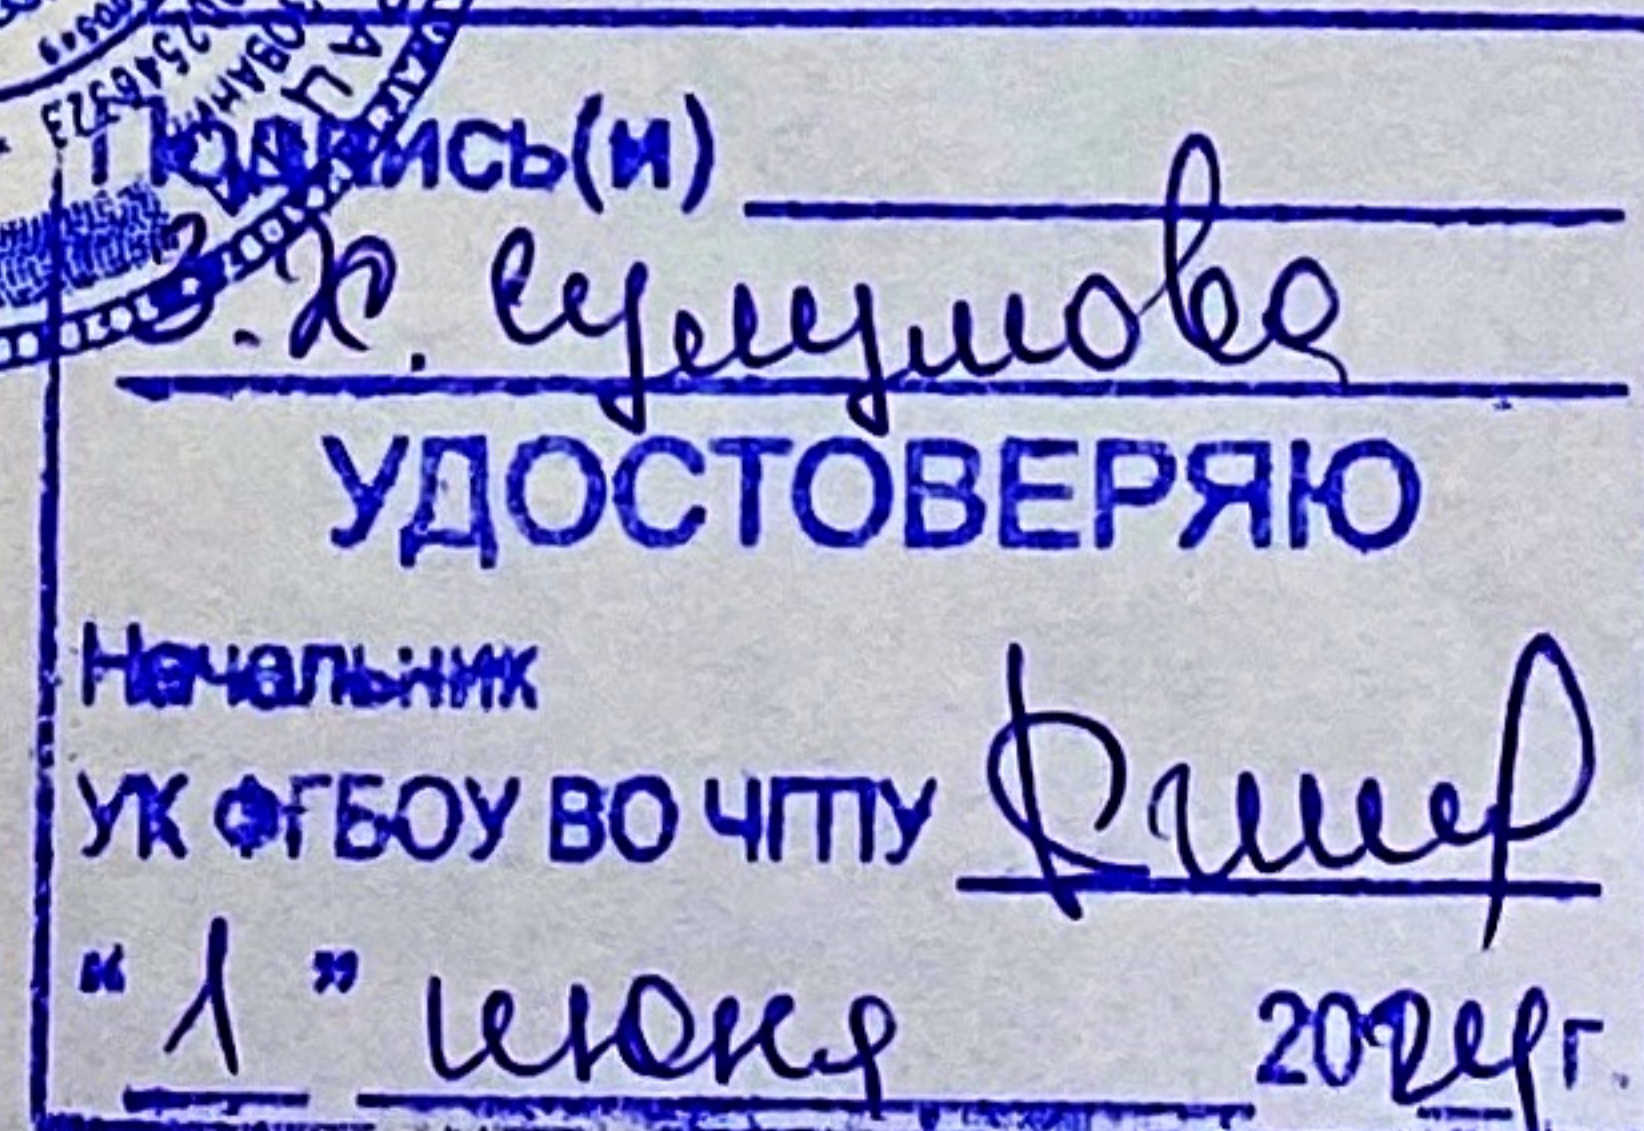 Подпись(и)
З.Х. Сулумова
УДОСТОВЕРЯЮ
Начальник
УК ФГБОУ ВО ЧГПУ
“ 1 ” июня 2024 г